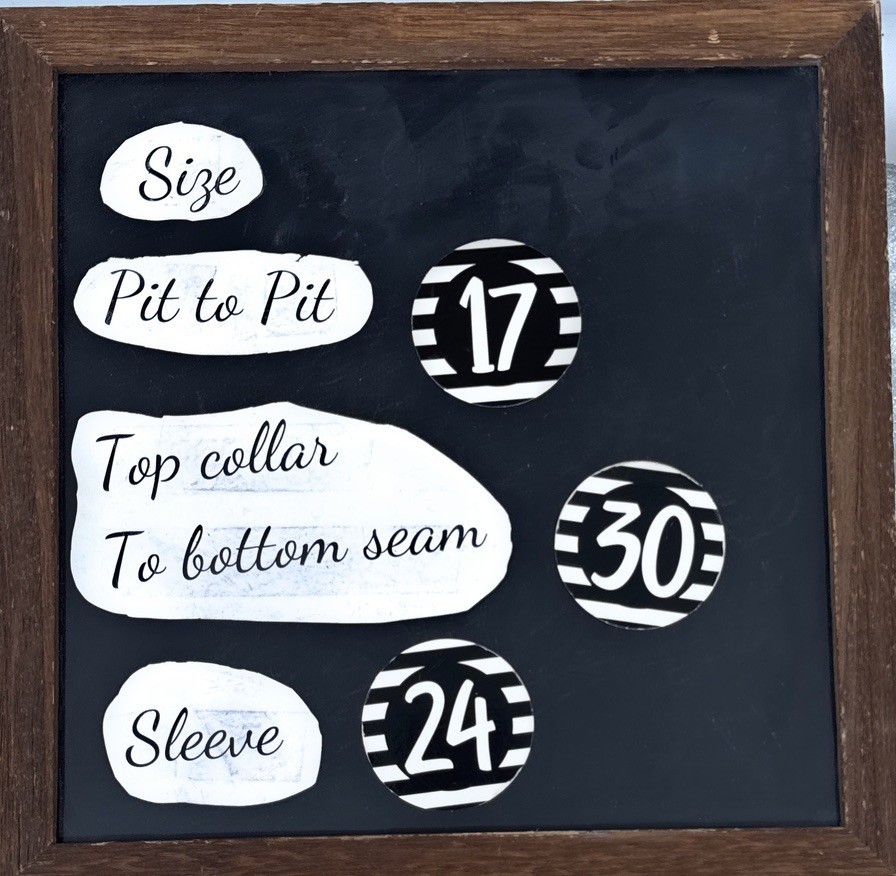 Size
Pit to Pit 17
Top collar
To bottom seam 30
Sleeve 24